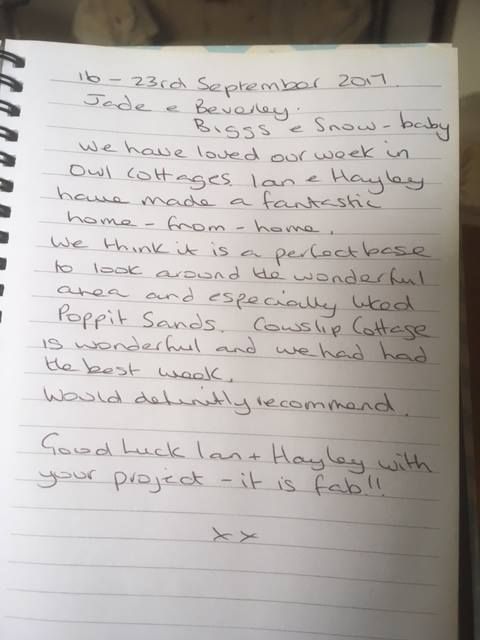 16 - 23rd September 2017.
Jade e Beverley.
Biggs e Snow-baby
We have loved our week in
Owl Cottages. Ian e Hayley
have made a fantastic
home - from - home.
We think it is a perfect base
to look around the wonderful
area and especially liked
Poppit Sands. Cowslip Cottage
is wonderful and we had had
the best week.
Would definitly recommend.
Good Luck Ian + Hayley with
your project - it is fab!!
xx